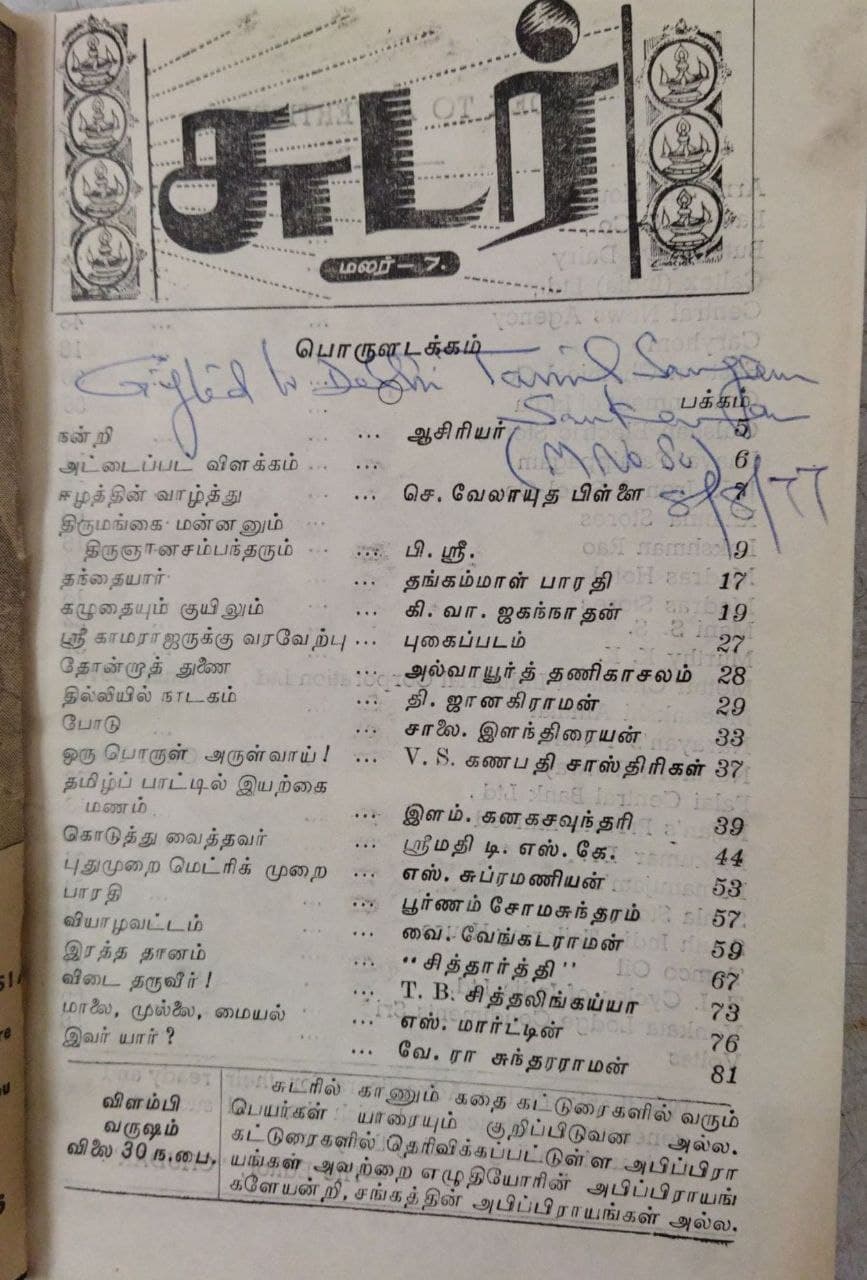 சுடர்
மலர் — 7.
பொருளடக்கம்
Gifted to Delhi Tamil Sangam
பக்கம்
நன்றி ... ஆசிரியர் 5
(M No 80)
அட்டைப்பட விளக்கம் ... 6
ஈழத்தின் வாழ்த்து ... செ. வேலாயுத பிள்ளை 7
8/8/77
திருமங்கை மன்னனும்
திருஞானசம்பந்தரும் ... பி. ஸ்ரீ. 9
தந்தையார் ... தங்கம்மாள் பாரதி 17
கழுதையும் குயிலும் ... கி. வா. ஜகந்நாதன் 19
ஸ்ரீ காமராஜருக்கு வரவேற்பு ... புகைப்படம் 27
தோன்றாத் துணை ... அல்வாயூர்த் தணிகாசலம் 28
தில்லியில் நாடகம் ... தி. ஜானகிராமன் 29
போடு ... சாலை. இளந்திரையன் 33
ஒரு பொருள் அருள்வாய்! ... V. S. கணபதி சாஸ்திரிகள் 37
தமிழ்ப் பாட்டில் இயற்கை
மணம் ... இளம். கனகசவுந்தரி 39
கொடுத்து வைத்தவர் ... ஸ்ரீமதி டி. எஸ். கே. 44
புதுமுறை மெட்ரிக் முறை ... எஸ். சுப்ரமணியன் 53
பாரதி ... பூர்ணம் சோமசுந்தரம் 57
வியாழவட்டம் ... வை. வேங்கடராமன் 59
இரத்த தானம் ... "சித்தார்த்தி" 67
விடை தருவீர்! ... T. B. சித்தலிங்கய்யா 73
மாலை, முல்லை, மையல் ... எஸ். மார்ட்டின் 76
இவர் யார்? ... வே. ரா சுந்தரராமன் 81
விளம்பி
வருஷம்
விலை 30 ந.பை.
சுடரில் காணும் கதை கட்டுரைகளில் வரும்
பெயர்கள் யாரையும் குறிப்பிடுவன அல்ல.
கட்டுரைகளில் தெரிவிக்கப்பட்டுள்ள அபிப்பிரா
யங்கள் அவற்றை எழுதியோரின் அபிப்பிராயங்
களேயன்றி, சங்கத்தின் அபிப்பிராயங்கள் அல்ல.